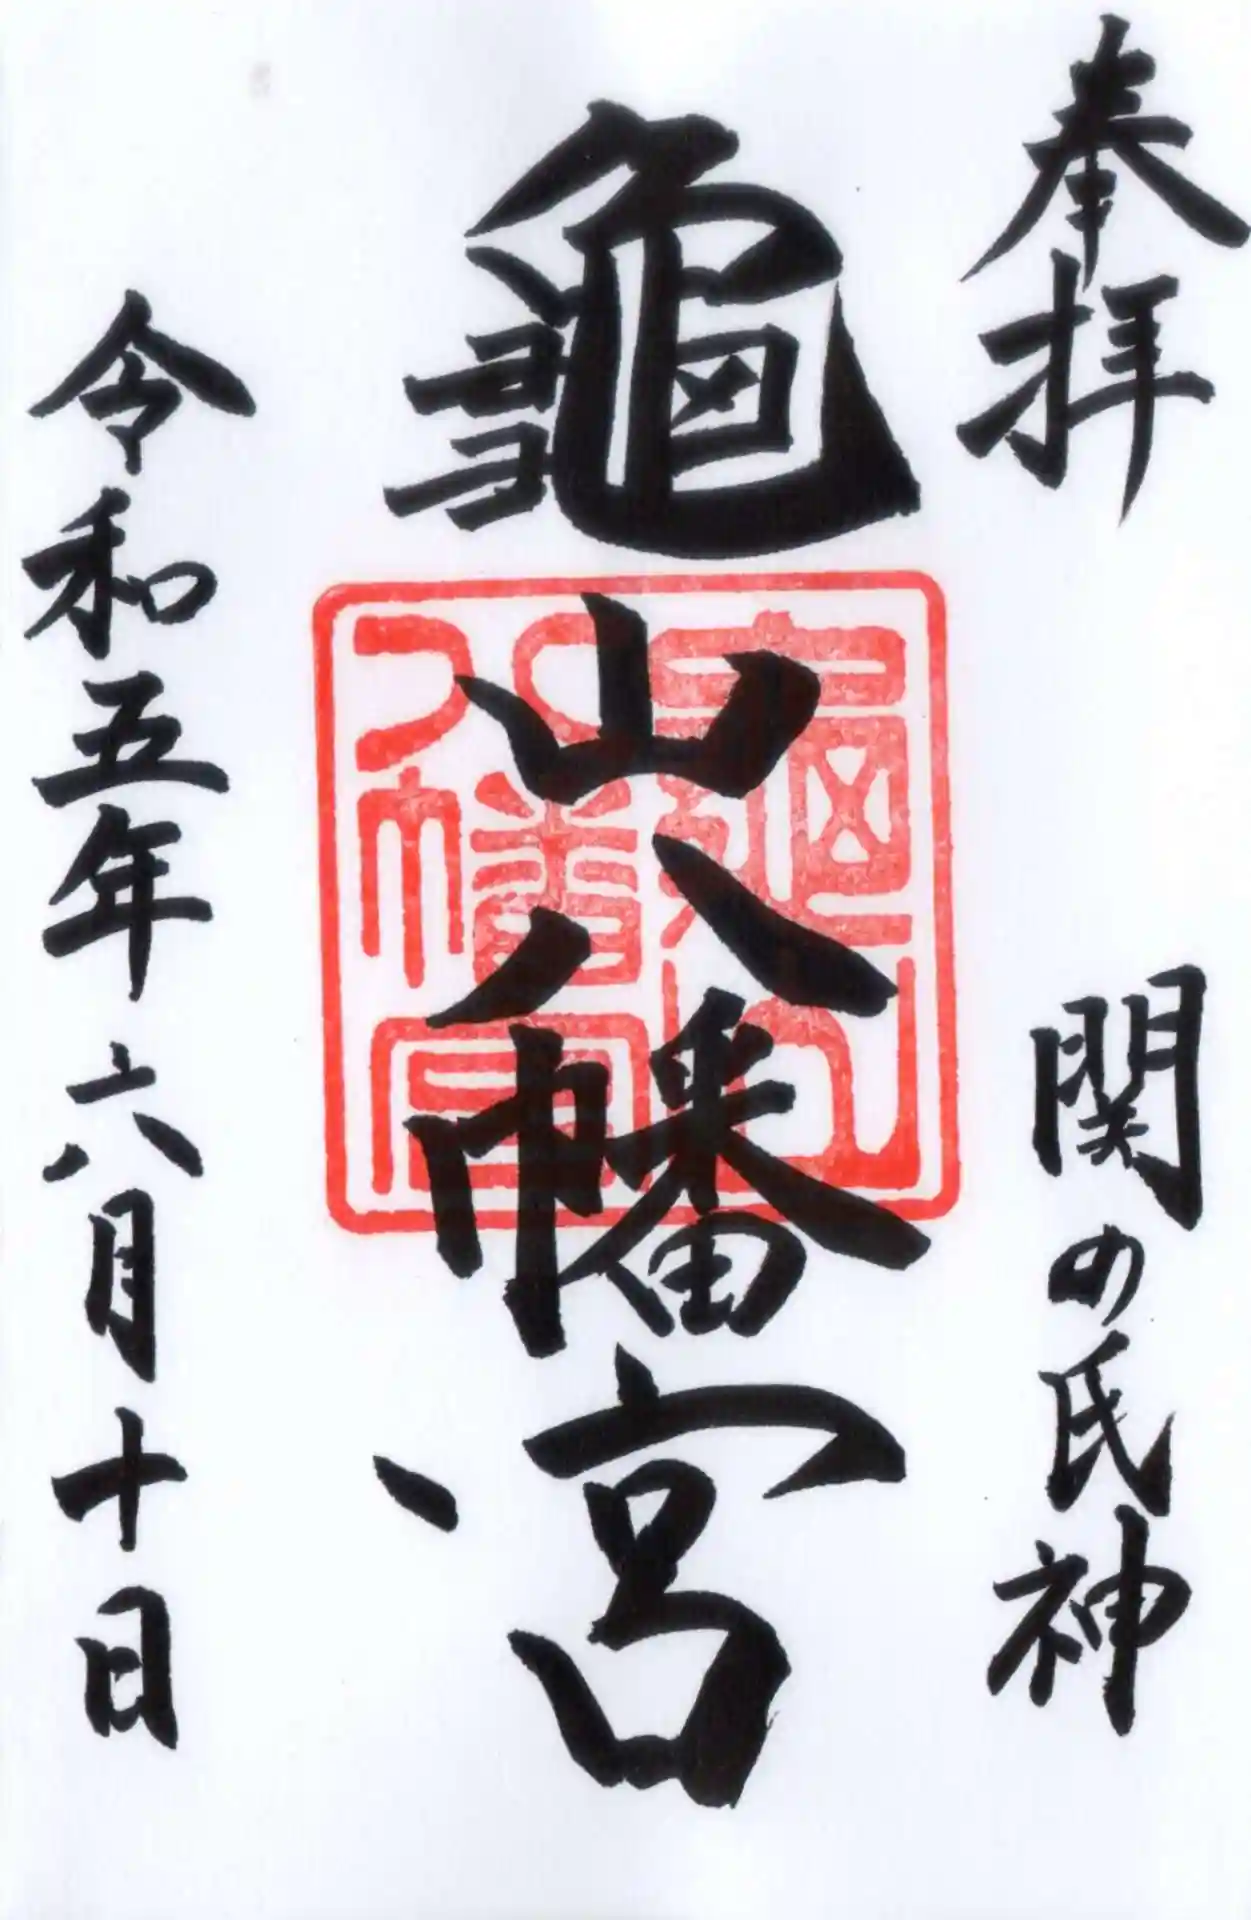 奉拝
関の氏神
龜山八幡宮
龜山八幡宮
令和五年六月十日